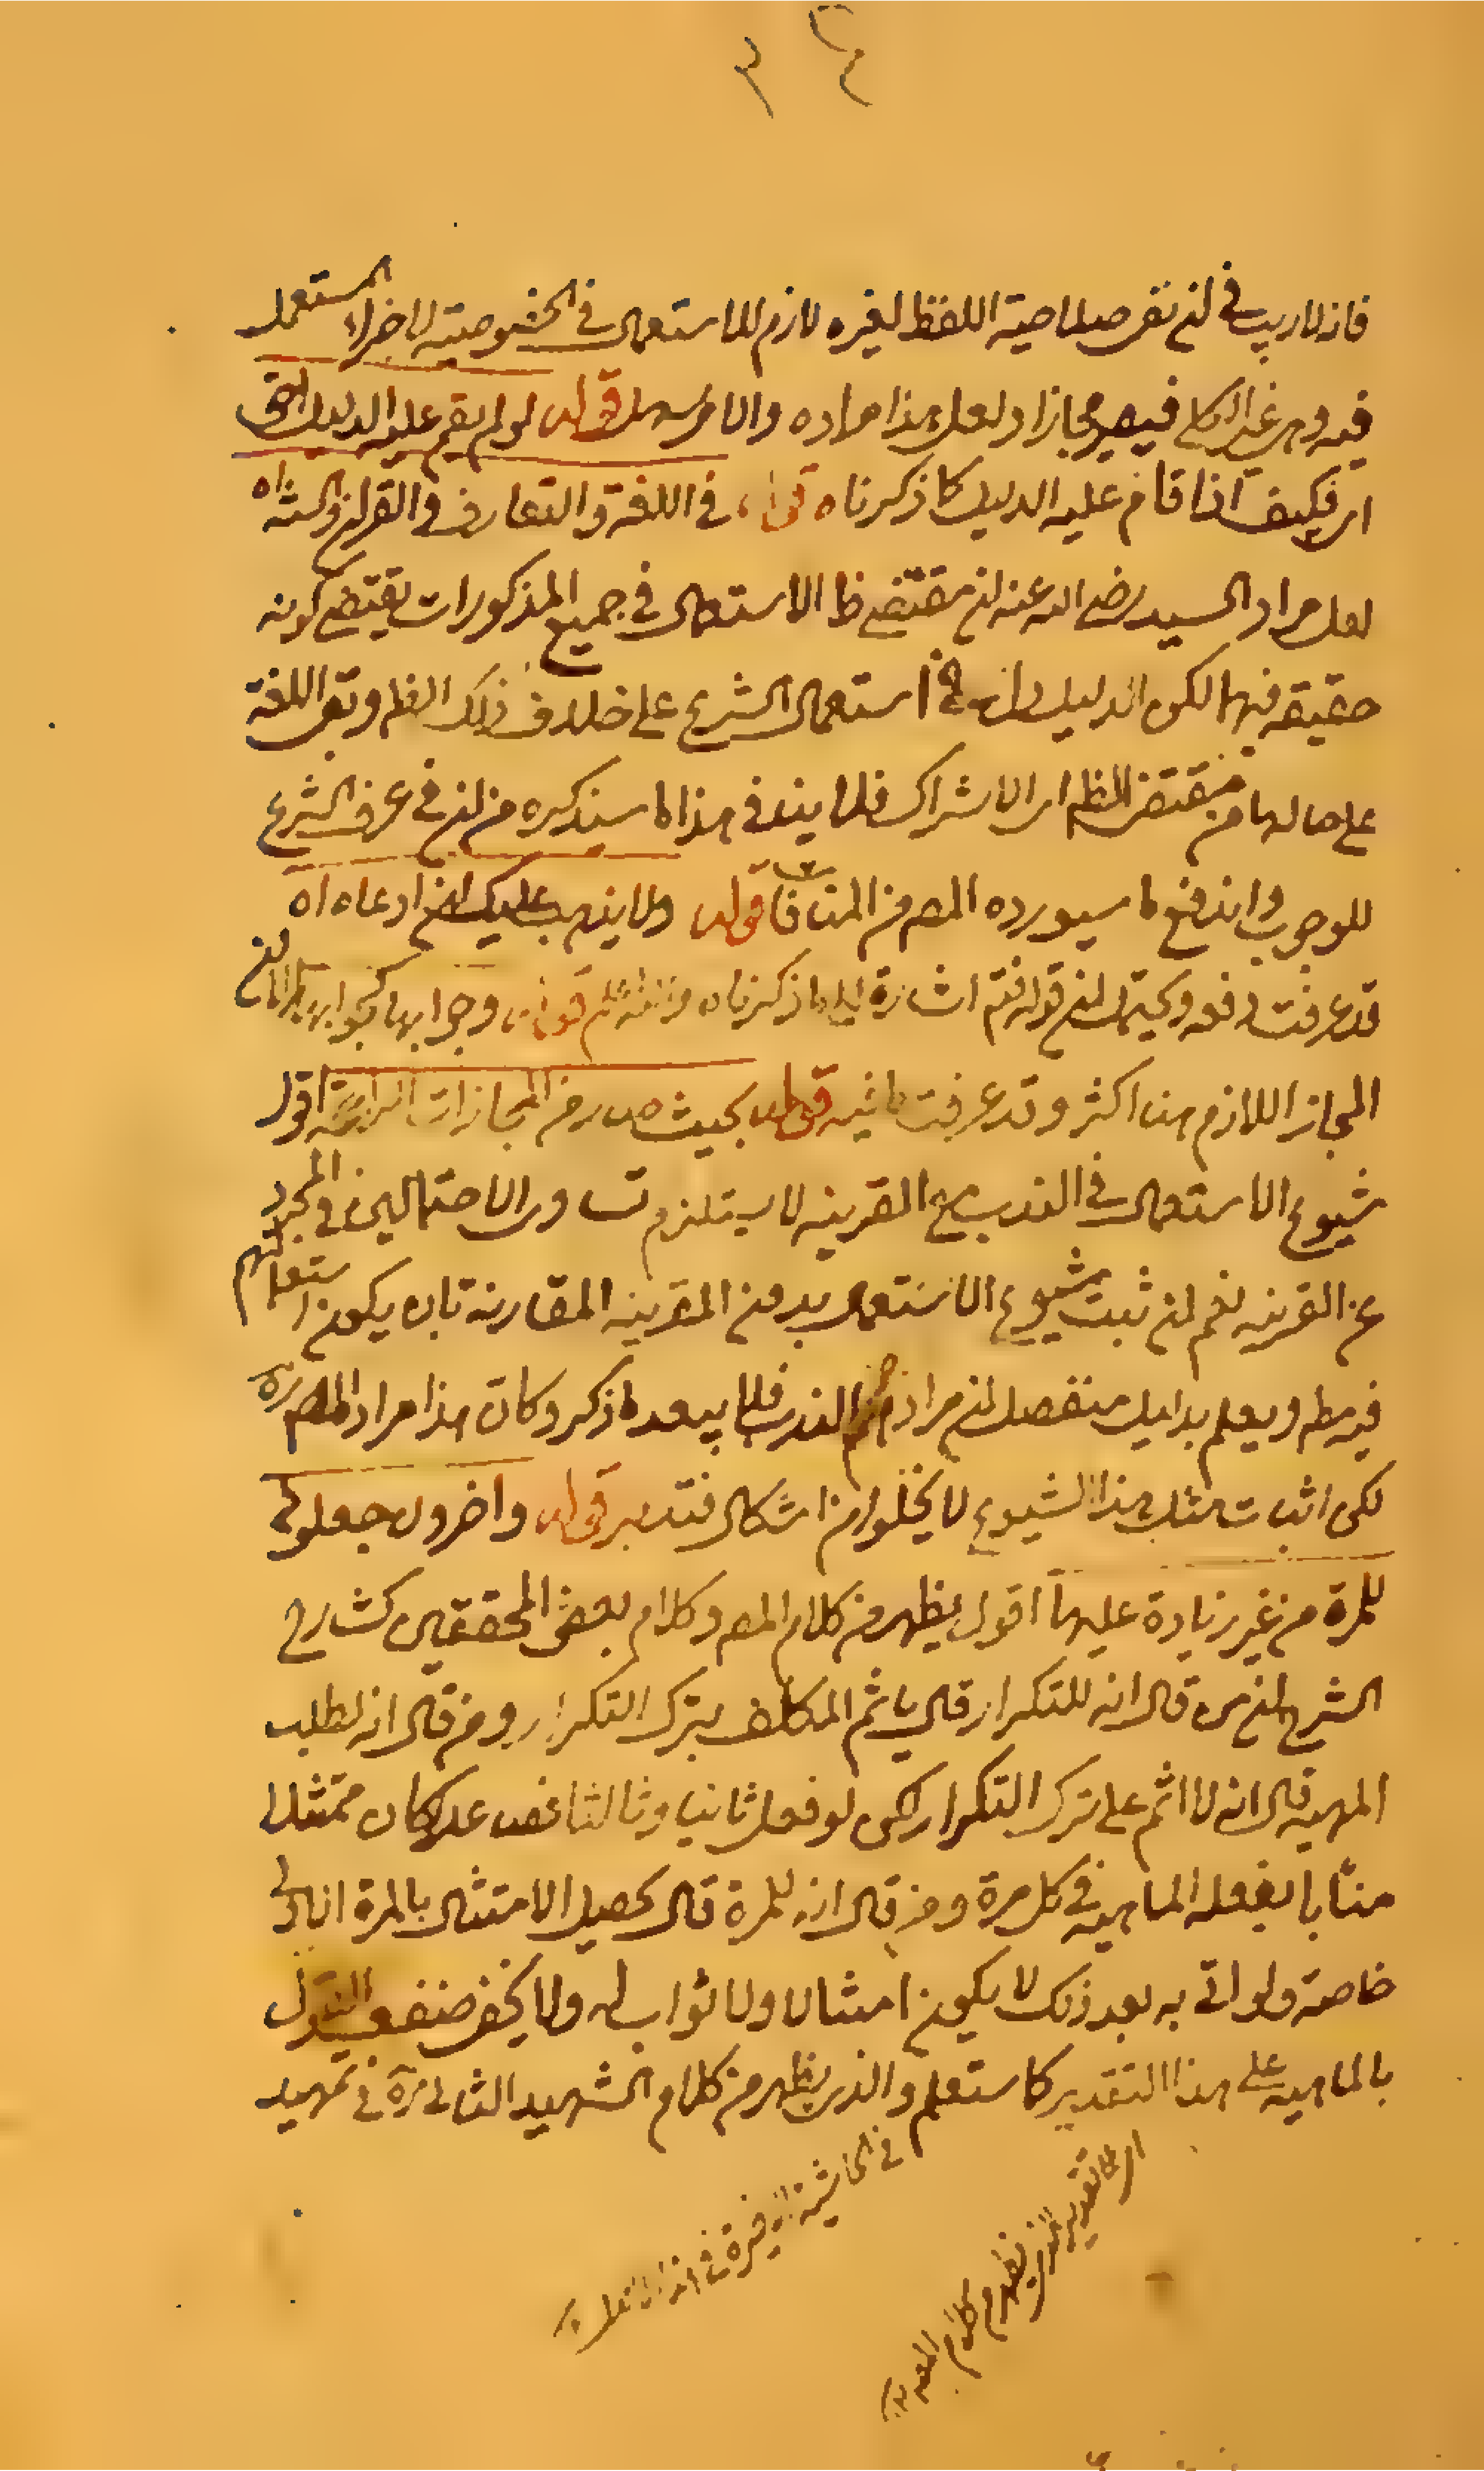 فانه لا ريب في ان نفي صلاحية اللفظ لغيره لازم للاستعمال في الخصوصية لا جزء المستعمل
فيه وهي غير الكلي فيصير مجازا ولعل هذا مراده والامر سهل قوله لو لم يقم عليه الدليل
اي فكيف اذا قام عليه الدليل كما ذكرناه قوله في اللغة والتعارف والقران والسنة اه
لعل مراد السيد رضي الله عنه ان مقتضى ظ الاستعمال في جميع المذكورات يقتضي كونه
حقيقه فيها لكن الدليل دل في استعمال الشرع على خلاف ذلك الظم وبقي اللغة
على حالها من مقتضى الظم اي الاشتراك فلا ينافي هذا لما سيذكره من ان في عرف الشرع
للوجوب واندفع ما سيورده المص من المنافاة قوله ولا يذهب عليك ان ادعاه اه
قد عرفت دفعه ويحتمل ان قوله فتم اشارة الى ما ذكرناه قوله وجوابها كجوابه
المجاز اللازم هنا اكثر وقد عرفت ما فيه قوله بحيث صار من المجازات الراجحة اقول
شيوع الاستعمال في الندب مع القرينه لا يستلزم تساوي الاحتمالين في المجرد
عن القرينه نعم ان ثبت شيوع الاستعمال بدون القرينه المقارنة بان يكون استعمالهم
فيه مط ويعلم بدليل منفصل ان مرادهم الندب فلا يبعد ما ذكر وكان هذا مراد المص ره
لكن اثبات مثل هذا الشيوع لا يخلوا من اشكال فتدبر قوله واخرون جعلوه
للمرة من غير زيادة عليها اقول يظهر من كلام المص وكلام بعض المحققين كشارح
الشرح ان من قال انه للتكرار قال ياثم المكلف بترك التكرار ومن قال انه لطلب
المهيه قال انه لا اثم على ترك التكرار لكن لو فعل ثانيا وثالثا فصاعدا كان ممتثلا
مثابا بفعله الماهيه في كل مرة ومن قال انه للمرة قال يحصل الامتثال بالمرة الاولى
خاصة ولو اتى به بعد ذلك لا يكون امتثالا ولا ثواب له ولا يخفى ضعف القول
بالماهيه على هذا التقدير كما ستعلم والذي يظهر من كلام الشهيد الثاني ره في تمهيد
اي على تقدير الذي يظهر من كلام المص
في الحاشية